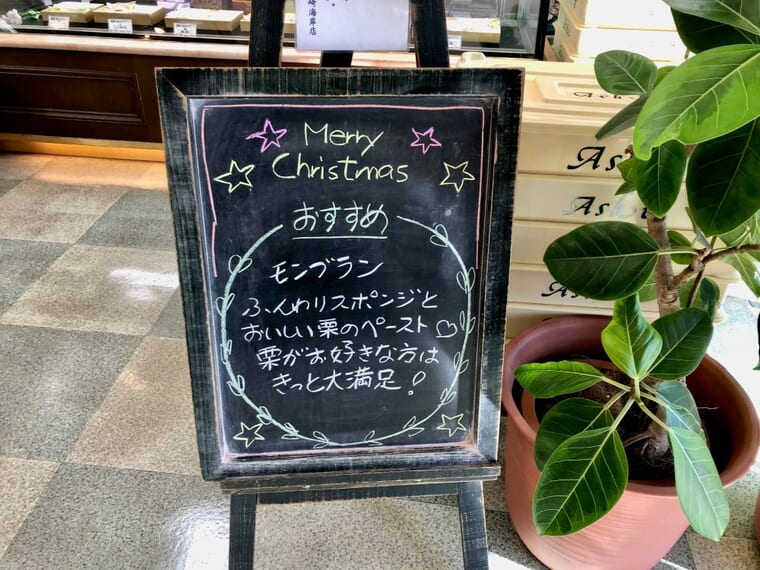 崎海岸店
Merry
Christmas
おすすめ
モンブラン
ふんわりスポンジと
おいしい栗のペースト♡
栗がお好きな方は
きっと大満足!